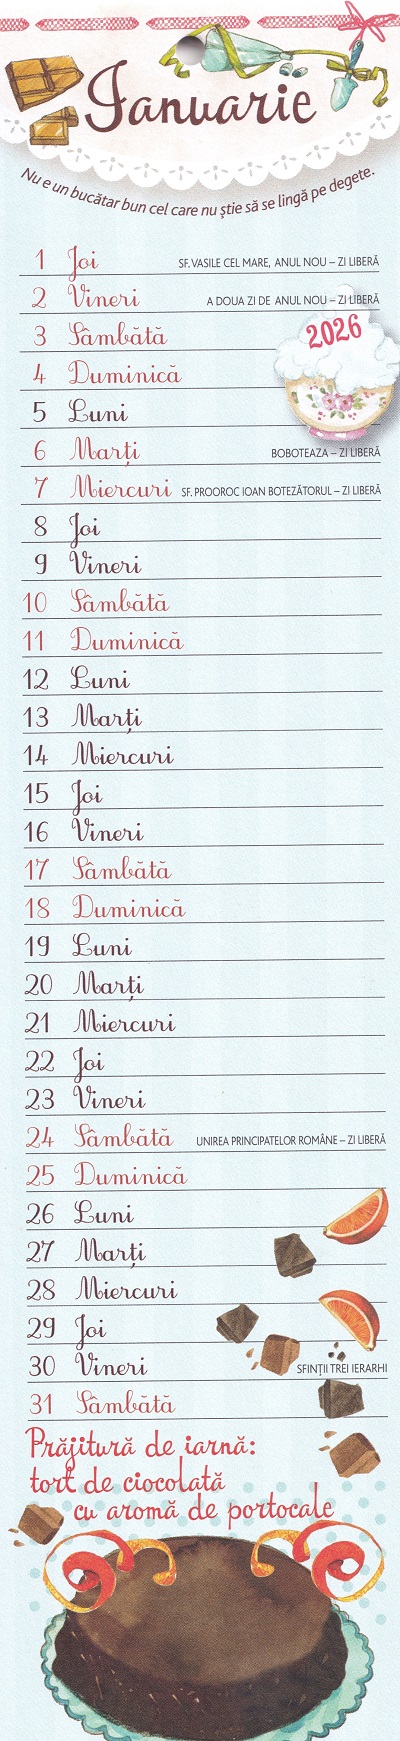 Ianuarie
Nu e un bucătar bun cel care nu știe să se lingă pe degete.
1 Joi SF. VASILE CEL MARE, ANUL NOU – ZI LIBERĂ
2 Vineri A DOUA ZI DE ANUL NOU – ZI LIBERĂ
2026
3 Sâmbătă
4 Duminică
5 Luni
6 Marți BOBOTEAZA – ZI LIBERĂ
7 Miercuri SF. PROOROC IOAN BOTEZĂTORUL – ZI LIBERĂ
8 Joi
9 Vineri
10 Sâmbătă
11 Duminică
12 Luni
13 Marți
14 Miercuri
15 Joi
16 Vineri
17 Sâmbătă
18 Duminică
19 Luni
20 Marți
21 Miercuri
22 Joi
23 Vineri
24 Sâmbătă UNIREA PRINCIPATELOR ROMÂNE – ZI LIBERĂ
25 Duminică
26 Luni
27 Marți
28 Miercuri
29 Joi
30 Vineri SFINȚII TREI IERARHI
31 Sâmbătă
Prăjitură de iarnă:
tort de ciocolată
cu aromă de portocale